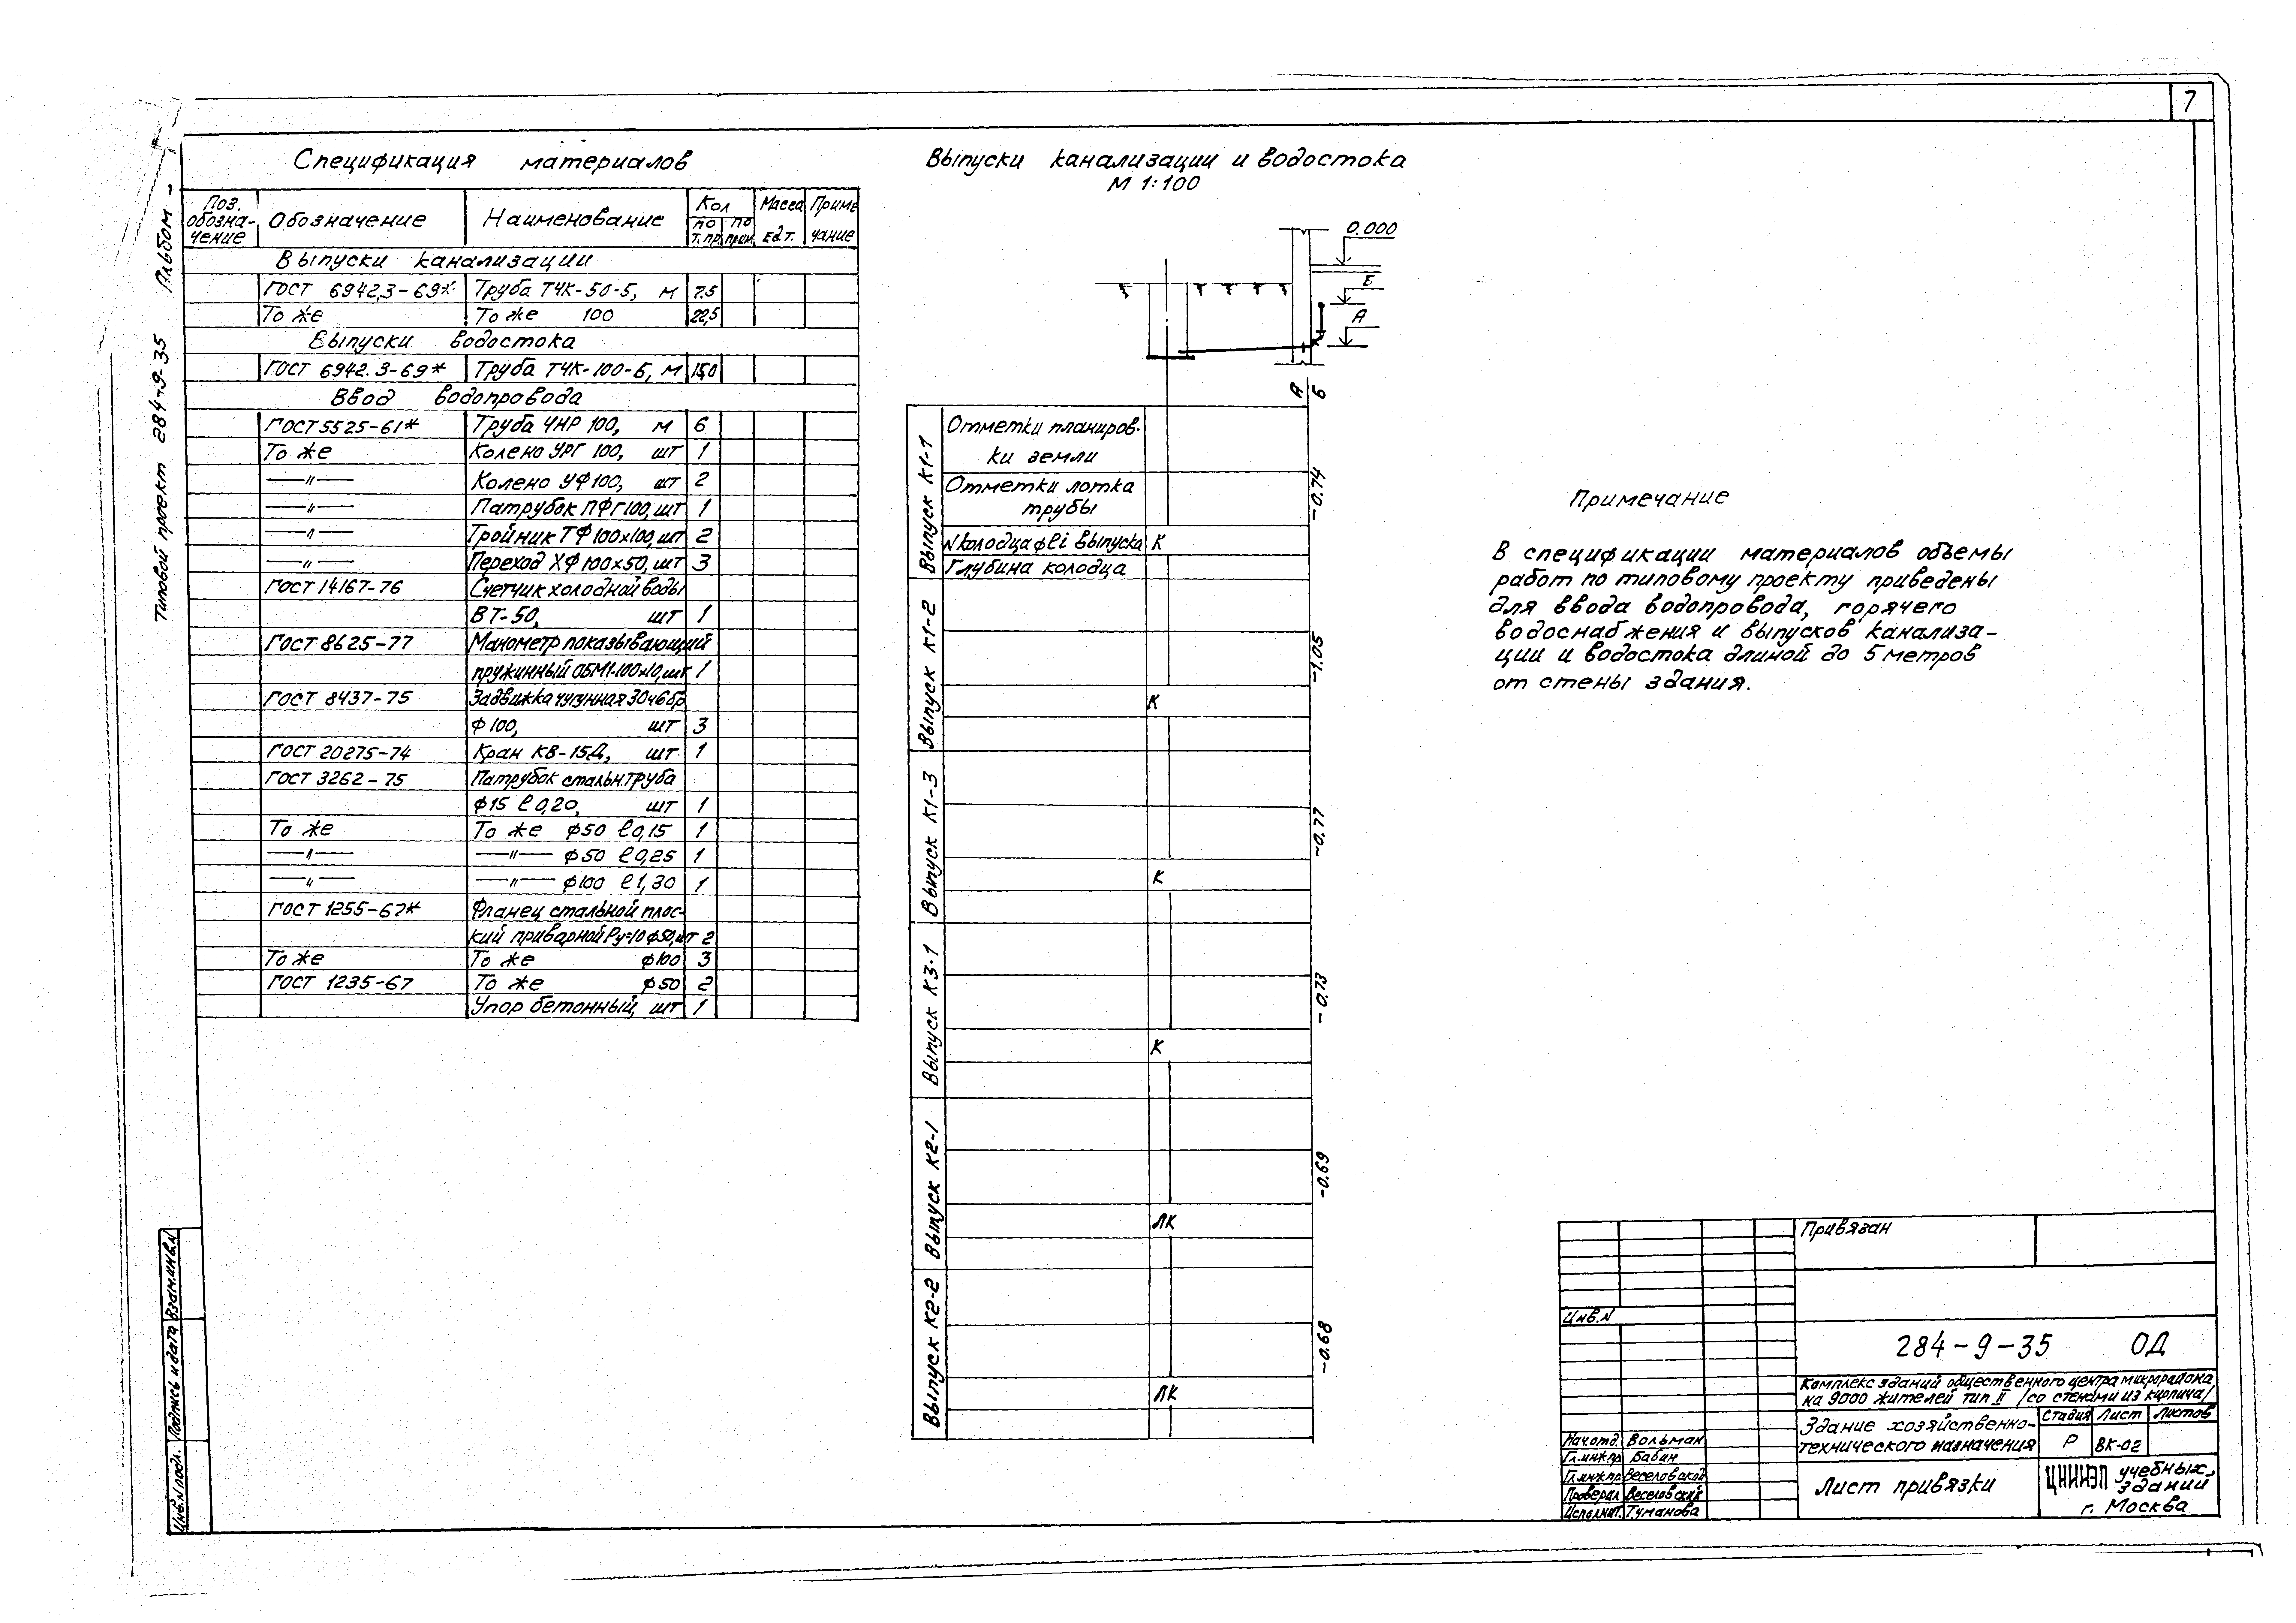 7
Типовой проект 284-9-35 Альбом
Спецификация материалов
Поз. обозна-чение Обозначение Наименование Кол по т.пр. по прим. Масса ед т. Примечание
Выпуски канализации
ГОСТ 6942,3-69* Труба ТЧК-50-5, м 7.5
То же То же 100 22,5
Выпуски водостока
ГОСТ 6942.3-69* Труба ТЧК-100-Б, м 15,0
Ввод водопровода
ГОСТ 5525-61* Труба ЧНР 100, м 6
То же Колено УРГ 100, шт 1
—"— Колено УФ100, шт 2
—"— Патрубок ПФГ100, шт 1
—"— Тройник ТФ 100x100, шт 2
—"— Переход ХФ 100x50, шт 3
ГОСТ 14167-76 Счетчик холодной воды
ВТ-50, шт 1
ГОСТ 8625-77 Манометр показывающий
пружинный ОБМ1-100x10, шт 1
ГОСТ 8437-75 Задвижка чугунная 30ч6бр
ф 100, шт 3
ГОСТ 20275-74 Кран КВ-15Д, шт. 1
ГОСТ 3262-75 Патрубок стальн.труба
ф15 ℓ0,20, шт 1
То же То же ф50 ℓ0,15 1
—"— —"— ф50 ℓ0,25 1
—"— —"— ф100 ℓ1,30 1
ГОСТ 1255-67* Фланец стальной плос-
кий приварной Ру=10 ф50, шт 2
То же То же ф100 3
ГОСТ 1235-67 То же ф50 2
Упор бетонный, шт 1
Выпуски канализации и водостока
М 1:100
0.000
Б
А
А Б
Выпуск К1-1
Отметки планиров-
ки земли
Отметки лотка
трубы
-0.74
N колодца ф ℓ i выпуска К
Глубина колодца
Выпуск К1-2
-1.05
К
Выпуск К1-3
-0.77
К
Выпуск К3-1
-0.73
К
Выпуск К2-1
-0.69
ЛК
Выпуск К2-2
-0.68
ЛК
Примечание
В спецификации материалов объемы
работ по типовому проекту приведены
для ввода водопровода, горячего
водоснабжения и выпусков канализа-
ции и водостока длиной до 5 метров
от стены здания.
Привязан
Инв.N
284-9-35 ОД
Комплекс зданий общественного центра микрорайона
на 9000 жителей тип II /со стенами из кирпича/
Здание хозяйственно-
технического назначения
Стадия Лист Листов
Р ВК-02
Лист привязки
ЦНИИЭП учебных
зданий
г. Москва
Нач.отд. Вольман
Гл.инж.пр Бабин
Гл.инж.пр Веселовский
Проверил Веселовский
Исполнит. Туманова
Инв.N подл. Подпись и дата Взам.инв.N